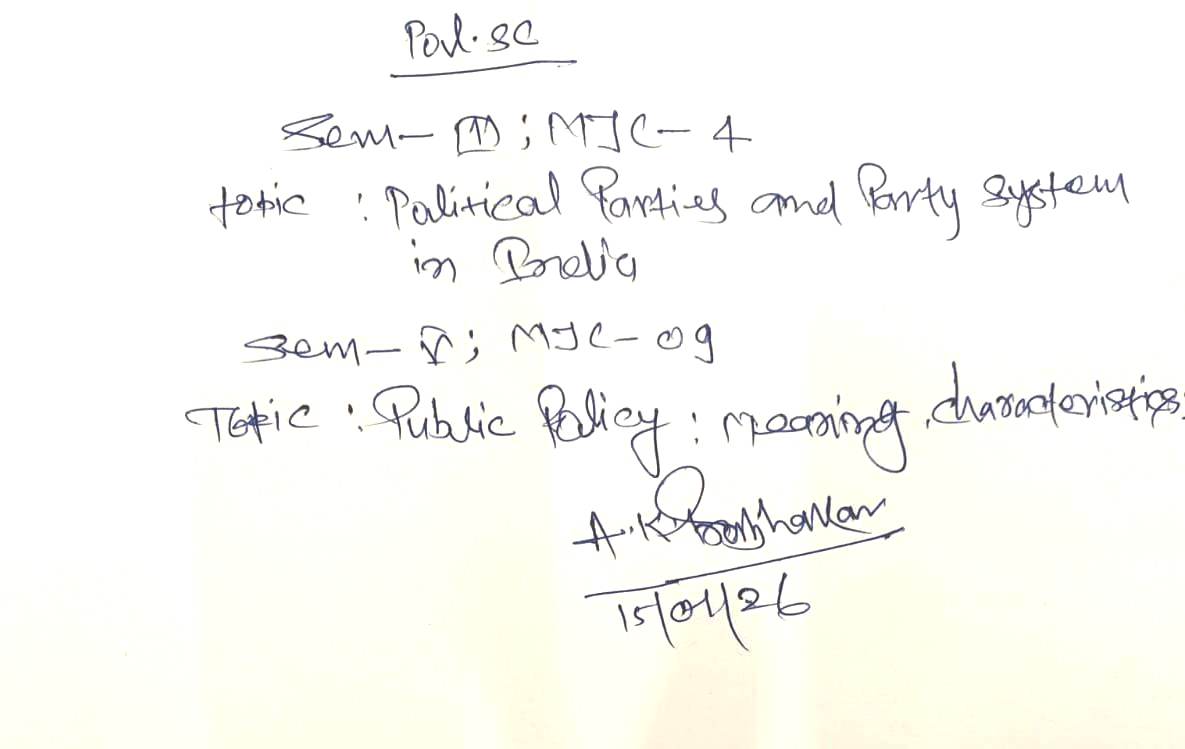 Pol. SC
Sem- III; MJC- 4
topic : Political Parties and Party system
in India
Sem- V; MJC- 09
Topic : Public Policy : meaning, characteristics.
A.K. Prabhakar
15/01/26